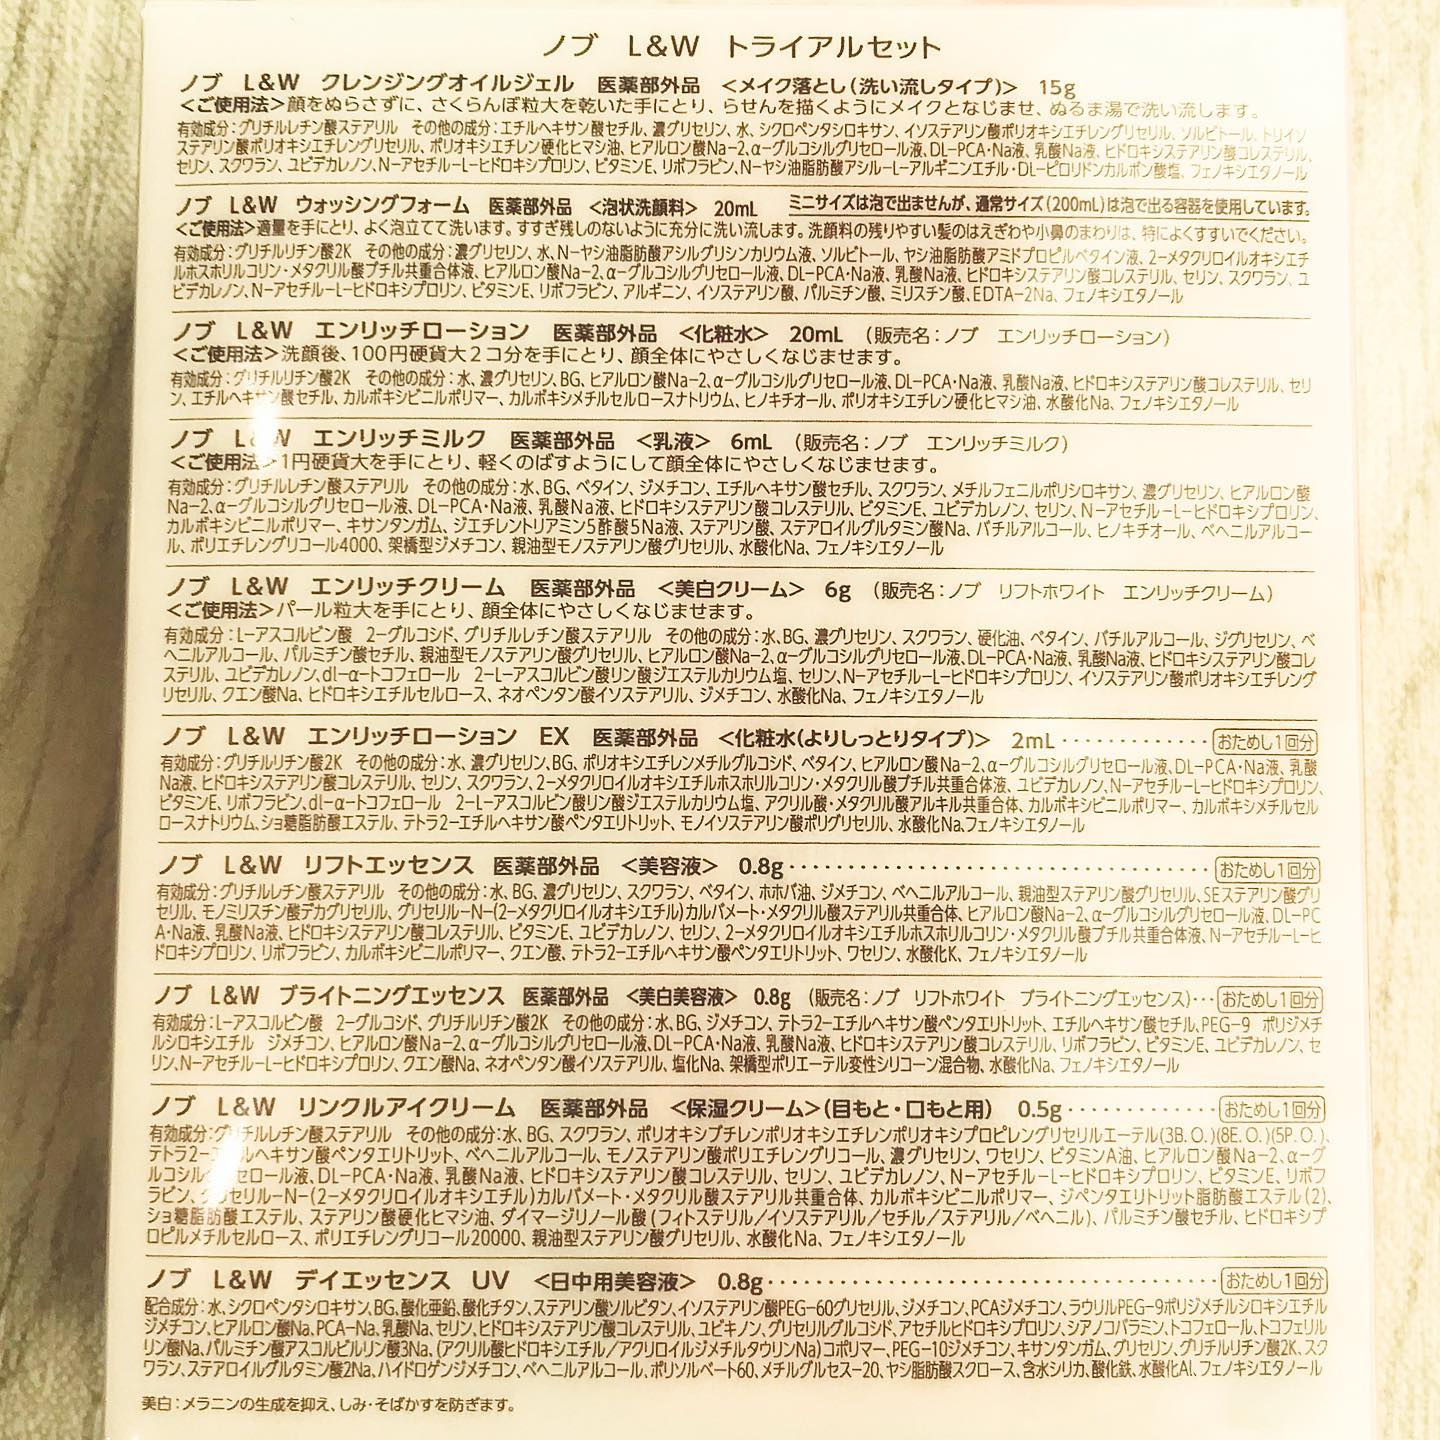 ノブ L&W トライアルセット
ノブ L&W クレンジングオイルジェル 医薬部外品 <メイク落とし(洗い流しタイプ)> 15g
<ご使用法>顔をぬらさずに、さくらんぼ粒大を乾いた手にとり、らせんを描くようにメイクとなじませ、ぬるま湯で洗い流します。
有効成分:グリチルレチン酸ステアリル その他の成分:エチルヘキサン酸セチル、濃グリセリン、水、シクロペンタシロキサン、イソステアリン酸ポリオキシエチレングリセリル、ソルビトール、トリイソ
ステアリン酸ポリオキシエチレングリセリル、ポリオキシエチレン硬化ヒマシ油、ヒアルロン酸Na-2、α-グルコシルグリセロール液、DL-PCA・Na液、乳酸Na液、ヒドロキシステアリン酸コレステリル、
セリン、スクワラン、ユビデカレノン、N-アセチル-L-ヒドロキシプロリン、ビタミンE、リボフラビン、N-ヤシ油脂肪酸アシル-L-アルギニンエチル・DL-ピロリドンカルボン酸塩、フェノキシエタノール
ノブ L&W ウォッシングフォーム 医薬部外品 <泡状洗顔料> 20mL ミニサイズは泡で出ませんが、通常サイズ(200mL)は泡で出る容器を使用しています。
<ご使用法>適量を手にとり、よく泡立てて洗います。すすぎ残しのないように充分に洗い流します。洗顔料の残りやすい髪のはえぎわや小鼻のまわりは、特によくすすいでください。
有効成分:グリチルリチン酸2K その他の成分:濃グリセリン、水、N-ヤシ油脂肪酸アシルグリシンカリウム液、ソルビトール、ヤシ油脂肪酸アミドプロピルベタイン液、2-メタクリロイルオキシエチ
ルホスホリルコリン・メタクリル酸ブチル共重合体液、ヒアルロン酸Na-2、α-グルコシルグリセロール液、DL-PCA・Na液、乳酸Na液、ヒドロキシステアリン酸コレステリル、セリン、スクワラン、ユ
ビデカレノン、N-アセチル-L-ヒドロキシプロリン、ビタミンE、リボフラビン、アルギニン、イソステアリン酸、パルミチン酸、ミリスチン酸、EDTA-2Na、フェノキシエタノール
ノブ L&W エンリッチローション 医薬部外品 <化粧水> 20mL (販売名:ノブ エンリッチローション)
<ご使用法>洗顔後、100円硬貨大2コ分を手にとり、顔全体にやさしくなじませます。
有効成分:グリチルリチン酸2K その他の成分:水、濃グリセリン、BG、ヒアルロン酸Na-2、α-グルコシルグリセロール液、DL-PCA・Na液、乳酸Na液、ヒドロキシステアリン酸コレステリル、セリ
ン、エチルヘキサン酸セチル、カルボキシビニルポリマー、カルボキシメチルセルロースナトリウム、ヒノキチオール、ポリオキシエチレン硬化ヒマシ油、水酸化Na、フェノキシエタノール
ノブ L&W エンリッチミルク 医薬部外品 <乳液> 6mL (販売名:ノブ エンリッチミルク)
<ご使用法>1円硬貨大を手にとり、軽くのばすようにして顔全体にやさしくなじませます。
有効成分:グリチルレチン酸ステアリル その他の成分:水、BG、ベタイン、ジメチコン、エチルヘキサン酸セチル、スクワラン、メチルフェニルポリシロキサン、濃グリセリン、ヒアルロン酸
Na-2、α-グルコシルグリセロール液、DL-PCA・Na液、乳酸Na液、ヒドロキシステアリン酸コレステリル、ビタミンE、ユビデカレノン、セリン、N-アセチル-L-ヒドロキシプロリン、
カルボキシビニルポリマー、キサンタンガム、ジエチレントリアミン5酢酸5Na液、ステアリン酸、ステアロイルグルタミン酸Na、バチルアルコール、ヒノキチオール、ベヘニルアルコー
ル、ポリエチレングリコール4000、架橋型ジメチコン、親油型モノステアリン酸グリセリル、水酸化Na、フェノキシエタノール
ノブ L&W エンリッチクリーム 医薬部外品 <美白クリーム> 6g (販売名:ノブ リフトホワイト エンリッチクリーム)
<ご使用法>パール粒大を手にとり、顔全体にやさしくなじませます。
有効成分:L-アスコルビン酸 2-グルコシド、グリチルレチン酸ステアリル その他の成分:水、BG、濃グリセリン、スクワラン、硬化油、ベタイン、バチルアルコール、ジグリセリン、ベ
ヘニルアルコール、パルミチン酸セチル、親油型モノステアリン酸グリセリル、ヒアルロン酸Na-2、α-グルコシルグリセロール液、DL-PCA・Na液、乳酸Na液、ヒドロキシステアリン酸コレ
ステリル、ユビデカレノン、dl-α-トコフェロール 2-L-アスコルビン酸リン酸ジエステルカリウム塩、セリン、N-アセチル-L-ヒドロキシプロリン、イソステアリン酸ポリオキシエチレング
リセリル、クエン酸Na、ヒドロキシエチルセルロース、ネオペンタン酸イソステアリル、ジメチコン、水酸化Na、フェノキシエタノール
ノブ L&W エンリッチローション EX 医薬部外品 <化粧水(よりしっとりタイプ)> 2mL・・・・・・・・・・・・・おためし1回分
有効成分:グリチルリチン酸2K その他の成分:水、濃グリセリン、BG、ポリオキシエチレンメチルグルコシド、ベタイン、ヒアルロン酸Na-2、α-グルコシルグリセロール液、DL-PCA・Na液、乳酸
Na液、ヒドロキシステアリン酸コレステリル、セリン、スクワラン、2-メタクリロイルオキシエチルホスホリルコリン・メタクリル酸ブチル共重合体液、ユビデカレノン、N-アセチル-L-ヒドロキシプロリン、
ビタミンE、リボフラビン、dl-α-トコフェロール 2-L-アスコルビン酸リン酸ジエステルカリウム塩、アクリル酸・メタクリル酸アルキル共重合体、カルボキシビニルポリマー、カルボキシメチルセル
ロースナトリウム、ショ糖脂肪酸エステル、テトラ2-エチルヘキサン酸ペンタエリトリット、モノイソステアリン酸ポリグリセリル、水酸化Na、フェノキシエタノール
ノブ L&W リフトエッセンス 医薬部外品 <美容液> 0.8g・・・・・・・・・・・・・・・・・・・・・・・・・・・・・・・・・・・・・・・おためし1回分
有効成分:グリチルレチン酸ステアリル その他の成分:水、BG、濃グリセリン、スクワラン、ベタイン、ホホバ油、ジメチコン、ベヘニルアルコール、親油型ステアリン酸グリセリル、SEステアリン酸グリ
セリル、モノミリスチン酸デカグリセリル、グリセリル-N-(2-メタクリロイルオキシエチル)カルバメート・メタクリル酸ステアリル共重合体、ヒアルロン酸Na-2、α-グルコシルグリセロール液、DL-PC
A・Na液、乳酸Na液、ヒドロキシステアリン酸コレステリル、ビタミンE、ユビデカレノン、セリン、2-メタクリロイルオキシエチルホスホリルコリン・メタクリル酸ブチル共重合体液、N-アセチル-L-ヒ
ドロキシプロリン、リボフラビン、カルボキシビニルポリマー、クエン酸、テトラ2-エチルヘキサン酸ペンタエリトリット、ワセリン、水酸化K、フェノキシエタノール
ノブ L&W ブライトニングエッセンス 医薬部外品 <美白美容液> 0.8g (販売名:ノブ リフトホワイト ブライトニングエッセンス)・・・おためし1回分
有効成分:L-アスコルビン酸 2-グルコシド、グリチルリチン酸2K その他の成分:水、BG、ジメチコン、テトラ2-エチルヘキサン酸ペンタエリトリット、エチルヘキサン酸セチル、PEG-9 ポリジメチ
ルシロキシエチル ジメチコン、ヒアルロン酸Na-2、α-グルコシルグリセロール液、DL-PCA・Na液、乳酸Na液、ヒドロキシステアリン酸コレステリル、リボフラビン、ビタミンE、ユビデカレノン、セ
リン、N-アセチル-L-ヒドロキシプロリン、クエン酸Na、ネオペンタン酸イソステアリル、塩化Na、架橋型ポリエーテル変性シリコーン混合物、水酸化Na、フェノキシエタノール
ノブ L&W リンクルアイクリーム 医薬部外品 <保湿クリーム>(目もと・口もと用) 0.5g・・・・・・・・・・・・・おためし1回分
有効成分:グリチルレチン酸ステアリル その他の成分:水、BG、スクワラン、ポリオキシブチレンポリオキシエチレンポリオキシプロピレングリセリルエーテル(3B.O.)(8E.O.)(5P.O.)、
テトラ2-エチルヘキサン酸ペンタエリトリット、ベヘニルアルコール、モノステアリン酸ポリエチレングリコール、濃グリセリン、ワセリン、ビタミンA油、ヒアルロン酸Na-2、α-グ
ルコシルグリセロール液、DL-PCA・Na液、乳酸Na液、ヒドロキシステアリン酸コレステリル、セリン、ユビデカレノン、N-アセチル-L-ヒドロキシプロリン、ビタミンE、リボフ
ラビン、グリセリル-N-(2-メタクリロイルオキシエチル)カルバメート・メタクリル酸ステアリル共重合体、カルボキシビニルポリマー、ジペンタエリトリット脂肪酸エステル(2)、
ショ糖脂肪酸エステル、ステアリン酸硬化ヒマシ油、ダイマージリノール酸(フィトステリル/イソステアリル/セチル/ステアリル/ベヘニル)、パルミチン酸セチル、ヒドロキシプ
ロピルメチルセルロース、ポリエチレングリコール20000、親油型ステアリン酸グリセリル、水酸化Na、フェノキシエタノール
ノブ L&W デイエッセンス UV <日中用美容液> 0.8g・・・・・・・・・・・・・・・・・・・・・・・・・・・・・・・・・・・・・・・・・おためし1回分
配合成分:水、シクロペンタシロキサン、BG、酸化亜鉛、酸化チタン、ステアリン酸ソルビタン、イソステアリン酸PEG-60グリセリル、ジメチコン、PCAジメチコン、ラウリルPEG-9ポリジメチルシロキシエチル
ジメチコン、ヒアルロン酸Na、PCA-Na、乳酸Na、セリン、ヒドロキシステアリン酸コレステリル、ユビキノン、グリセリルグルコシド、アセチルヒドロキシプロリン、シアノコバラミン、トコフェロール、トコフェリル
リン酸Na、パルミチン酸アスコルビルリン酸3Na、(アクリル酸ヒドロキシエチル/アクリロイルジメチルタウリンNa)コポリマー、PEG-10ジメチコン、キサンタンガム、グリセリン、グリチルリチン酸2K、スク
ワラン、ステアロイルグルタミン酸2Na、ハイドロゲンジメチコン、ベヘニルアルコール、ポリソルベート60、メチルグルセス-20、ヤシ脂肪酸スクロース、含水シリカ、酸化鉄、水酸化Al、フェノキシエタノール
美白:メラニンの生成を抑え、しみ・そばかすを防ぎます。